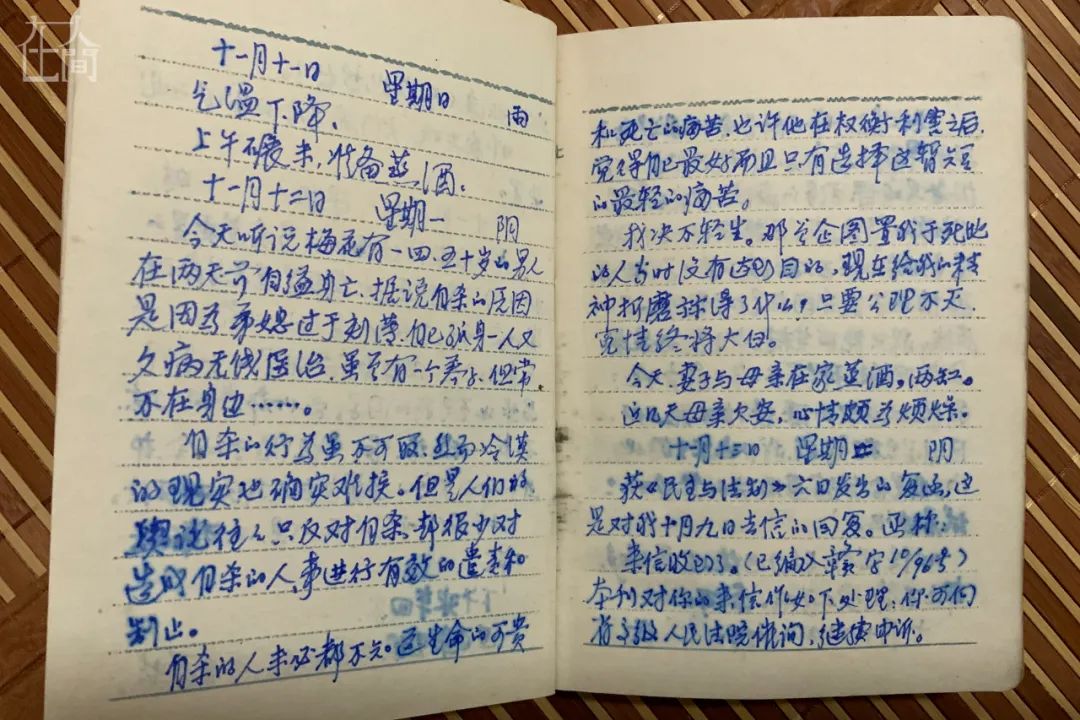 人间
十一月十一日 星期日 雨
气温下降、
上午碾米,准备蒸酒.
十一月十二日 星期一 阴
今天听说梅花有一四、五十岁的男人
在两天前自缢身亡.据说自杀的原因
是因为弟媳过于刻薄,自己孤身一人又
久病无钱医治,虽有一个养子,但常
不在身边……。
自杀的行为虽不可取,然而冷漠
的现实也确实难挨。但是人们的
舆论往々只反对自杀,却很少对
造成自杀的人事进行有效的谴责和
制止。
自杀的人未必都不知道生命的可贵
和死亡的痛苦,也许他在权衡利害之后,
觉得自己最好而且只有选择这暂短
的最轻的痛苦。
我决不轻生。那些企图置我于死地
的人当时没有达到目的,现在给我的精
神折磨算得了什么,只要公理不灭,
冤情终将大白。
今天,妻子与母亲在家蒸酒。两缸。
近几天母亲欠安,心情颇为烦燥。
十一月十三日 星期二 阴
获《民主与法制》六日发出的复函,这
是对我十月九日去信的回复。函称:
来信收到了。(已编入 字10/96号)
本刊对你的来信作如下处理:你可向
省高级人民法院催询,继续申诉。